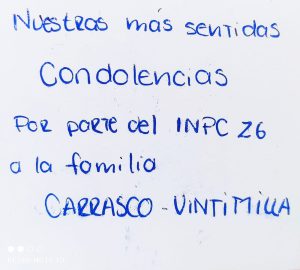 Nuestras más sentidas
Condolencias
Por parte del INPC Z6
a la familia
CARRASCO - VINTIMILLA